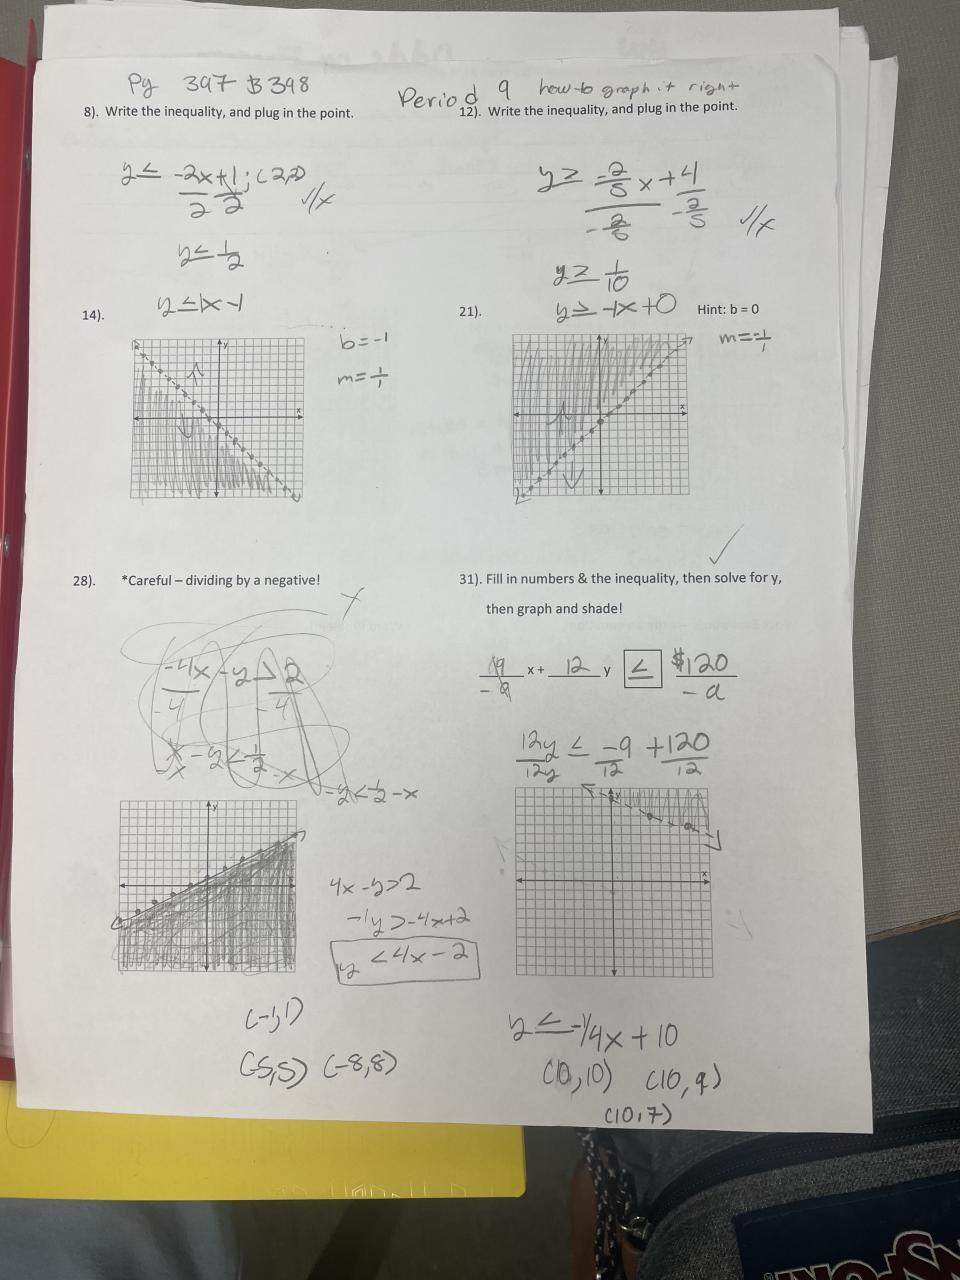 Pg 397 & 398
Period 9 how to graph it right
8). Write the inequality, and plug in the point.
12). Write the inequality, and plug in the point.
y ≤ -2x+1; (2,2)
2 2
√/x
y ≤ 1/2
y ≥ -2/5 x + 4
-2/5 -2/5
√/x
y ≥ 1/10
14). y ≤ 1x - 1
b = -1
m = 1/1
y
x
21). y ≥ -1x + 0 Hint: b = 0
m = -1/1
y
x
28). *Careful – dividing by a negative!
-4x - y > 2
-4 -4
x - y < 1/2 - x
-y < 1/2 - x
y
4x - y > 2
-1y > -4x + 2
y < 4x - 2
(-1,1)
(-5,5) (-8,8)
31). Fill in numbers & the inequality, then solve for y,
then graph and shade!
9 x + 12 y ≤ $120
-9 -9
12y ≤ -9 + 120
12y 12 12
y
x
y ≤ -1/4x + 10
(0,10) (10,9)
(10,7)